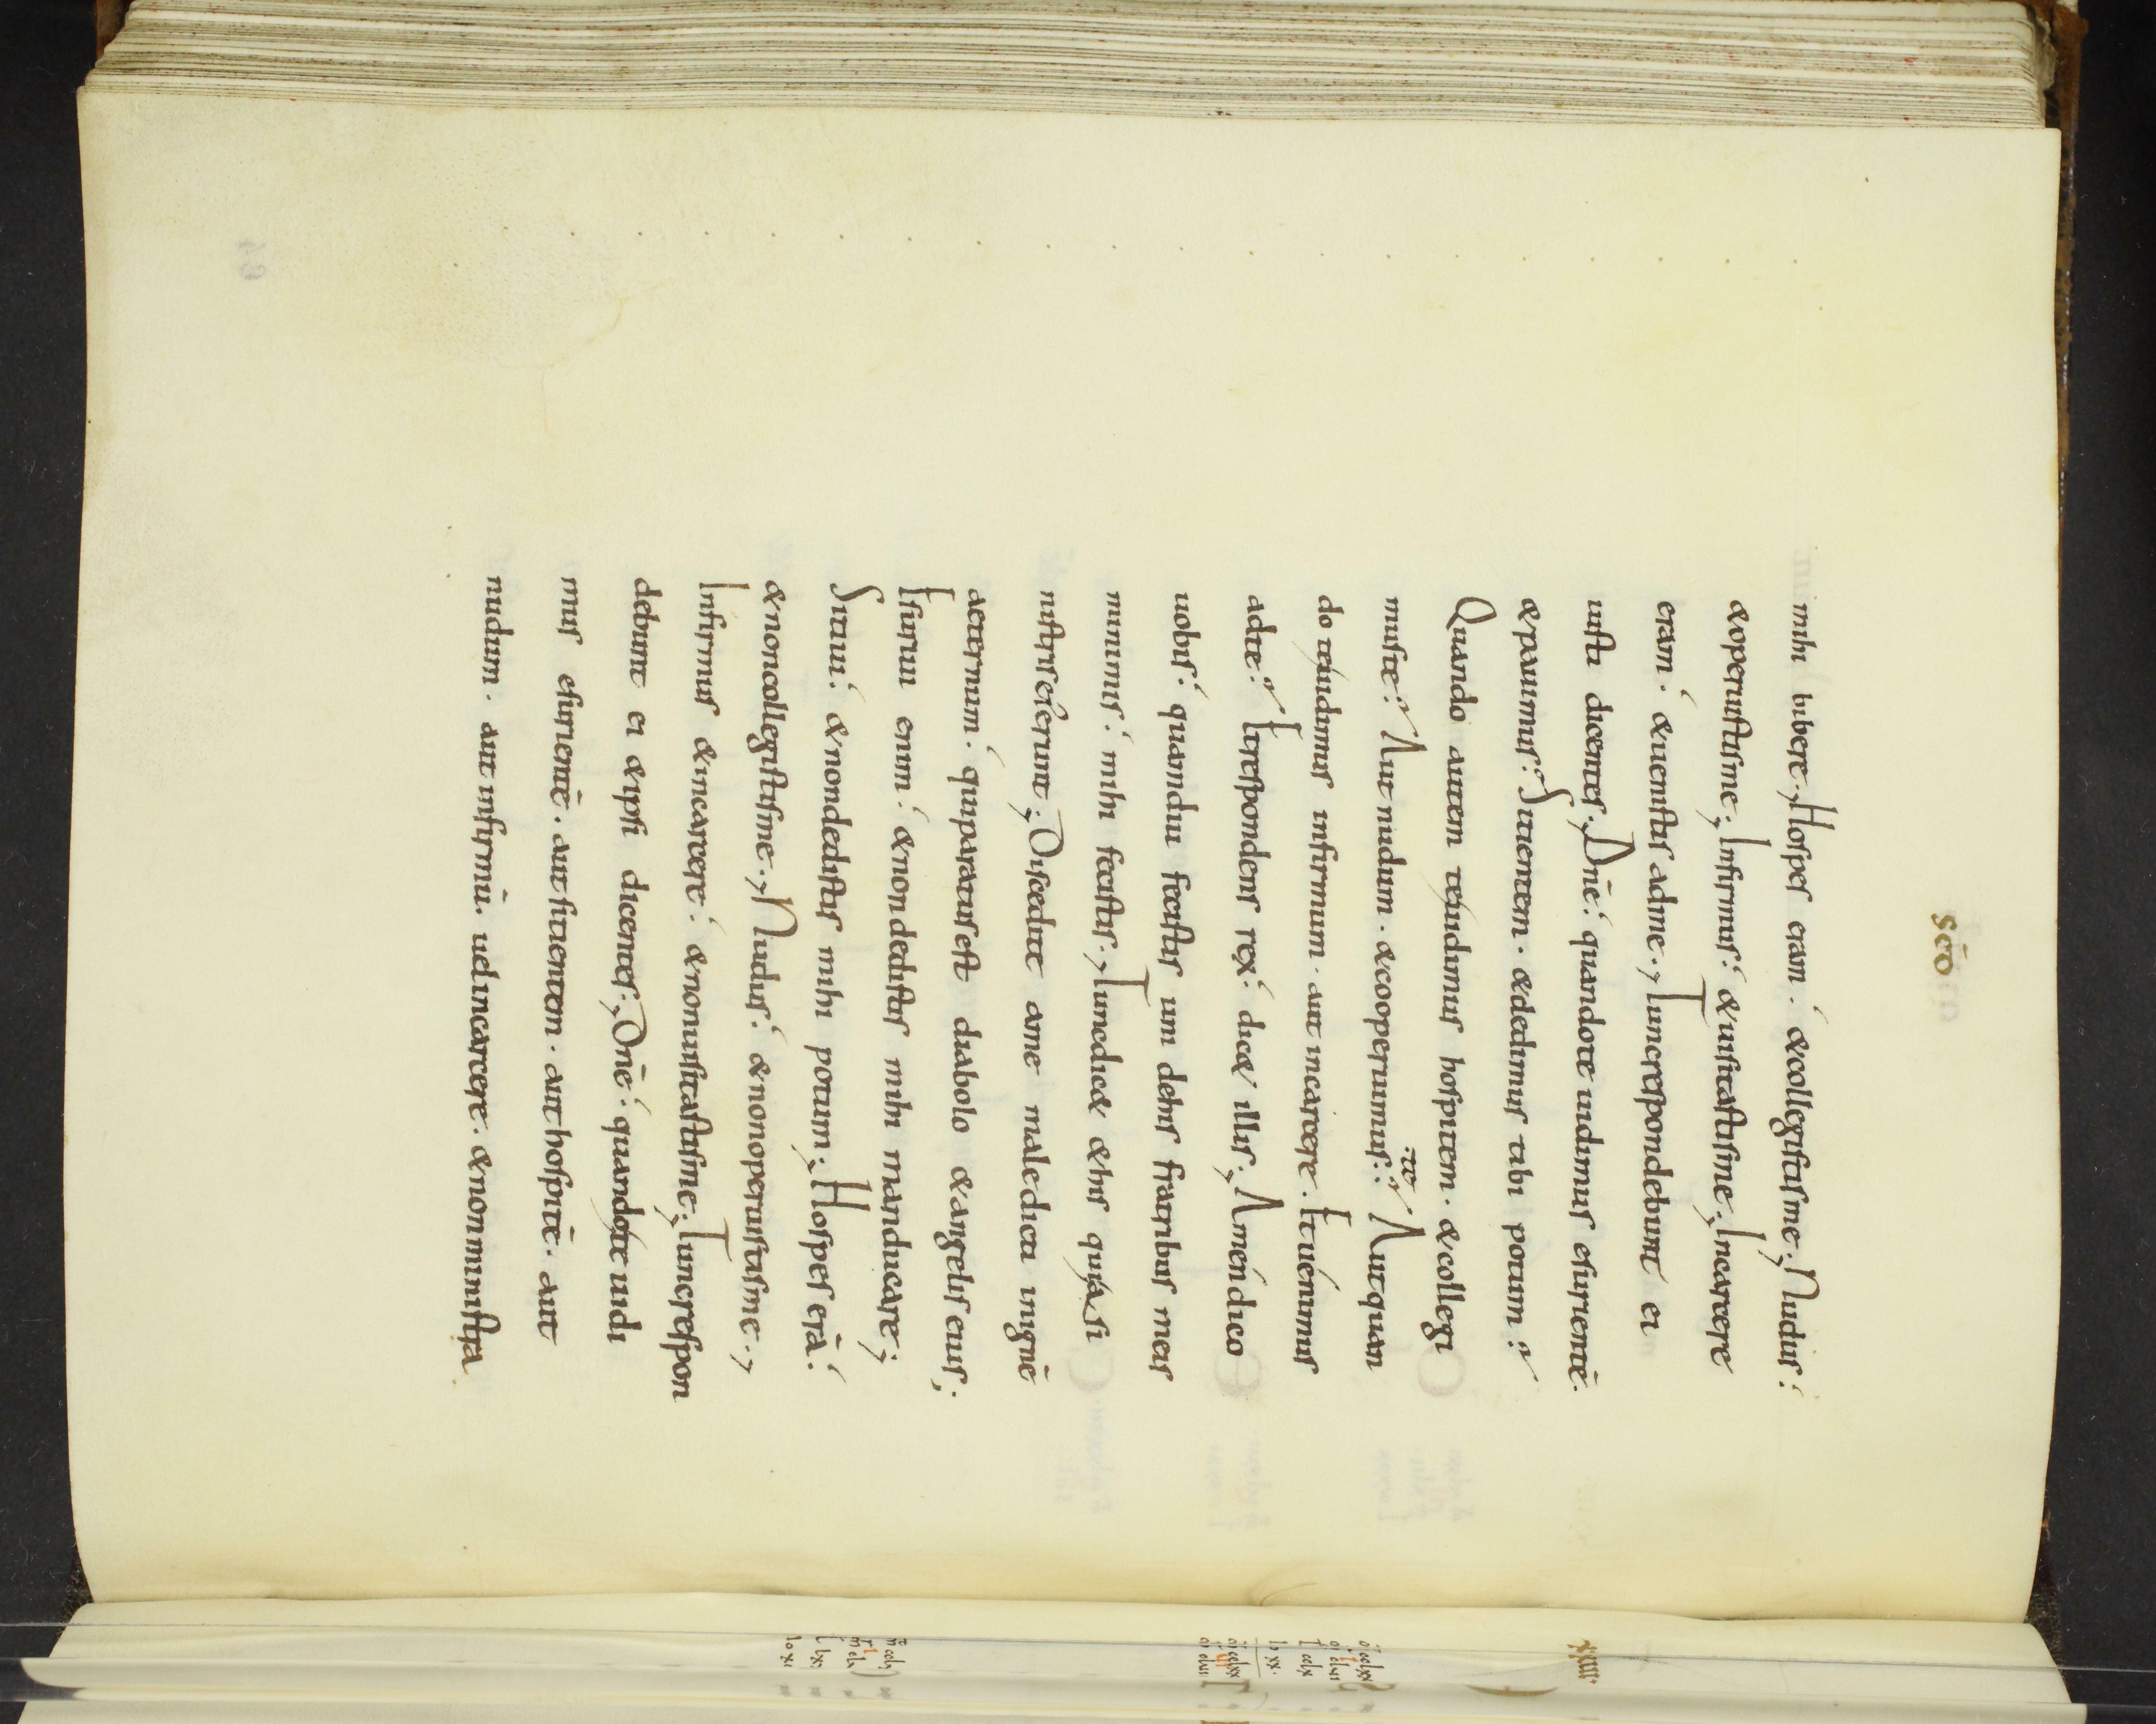 scō
mihi bibere; Hospes eram. &collegistisme; Nudus:
&operuistisme; Infirmus: &uisitastisme; Incarcere
eram. &uenistis adme; Tuncrespondebunt ei
iusti dicentes; Dnē: quandote uidimus esurientē.
&pauimus? Sitientem. &dedimus tibi potum?
Quando autem teuidimus hospitem. &collegi
muste? Aut nudum. &cooperuimus? te Autquan
do teuidimus infirmum. aut incarcere. Etuenimus
adte? Etrespondens rex: dic& illis; Amendico
uobis: quamdiu fecistis uni dehis fratribus meis
minimis: mihi fecistis; Tuncdic& &his quia si
nistris eius erunt; Discedite ame maledicti inignē
aeternum. quiparatusest diabolo &angelis eius;
Esuriui enim. &nondedistis mihi manducare;
Sitiui: &nondedistis mihi potum; Hospes erā:
&noncollegistisme; Nudus: &nonoperuistisme;
Infirmus &incarcere: &nonuisitastisme; Tuncrespon
debunt ei &ipsi dicentes; Dnē: quandote uidi
mus esurientē. aut sitientem. aut hospitē. aut
nudum. aut infirmū. uelincarcere. &nonministra